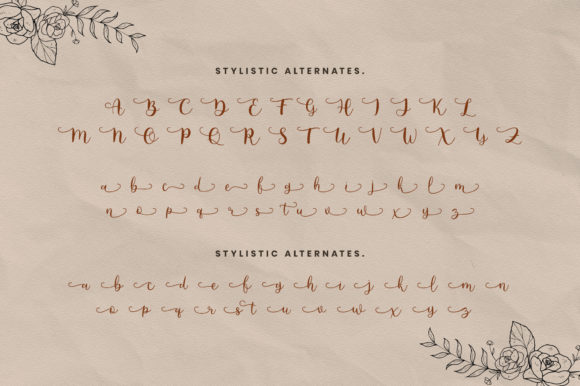 STYLISTIC ALTERNATES.
A B C D E F G H I J K L
M N O P Q R S T U V W X Y Z
a b c d e f g h i j k l m
n o p q r s t u v w x y z
STYLISTIC ALTERNATES.
a b c d e f g h i j k l m n
o p q r s t u v w x y z